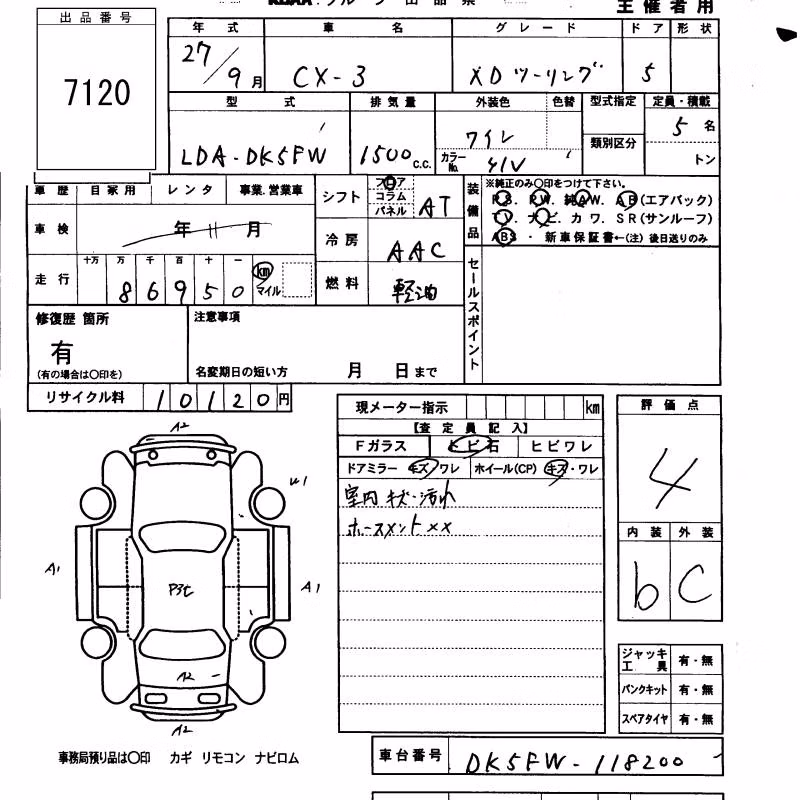 主催者用
出品番号
7120
年式 車名 グレード ドア 形状
27/9月 CX-3 XDツーリング 5
型式 排気量 外装色 色替 型式指定 定員・積載
LDA-DK5FW 1500c.c. ワイン カラーNo. 41V 類別区分 5名
トン
車歴 自家用 レンタ 事業.営業車
車検 年 11月
シフト フロア コラム パネル AT
冷房 AAC
装備品 ※純正のみ〇印をつけて下さい。
P.S. P.W. 純AW. A.B(エアバック)
T.V. ナビ. カワ. SR(サンルーフ)
ABS・新車保証書←(注)後日送りのみ
走行 十万 万 千 百 十 一
86950 km マイル
燃料 軽油
セールスポイント
修復歴 箇所
有
(有の場合は〇印を)
注意事項
名変期日の短い方 月 日まで
リサイクル料 10120円
現メーター指示 km
【査定員記入】
Fガラス トビ石 ヒビワレ
ドアミラー キズ ワレ ホイール(CP) キズ・ワレ
室内キズ・汚れ
ホースメント××
評価点
4
内装 外装
b C
A2
W1
A1
A1
A2
A2
ジャッキ工具 有・無
パンクキット 有・無
スペアタイヤ 有・無
事務局預り品は〇印 カギ リモコン ナビロム
車台番号 DK5FW-118200